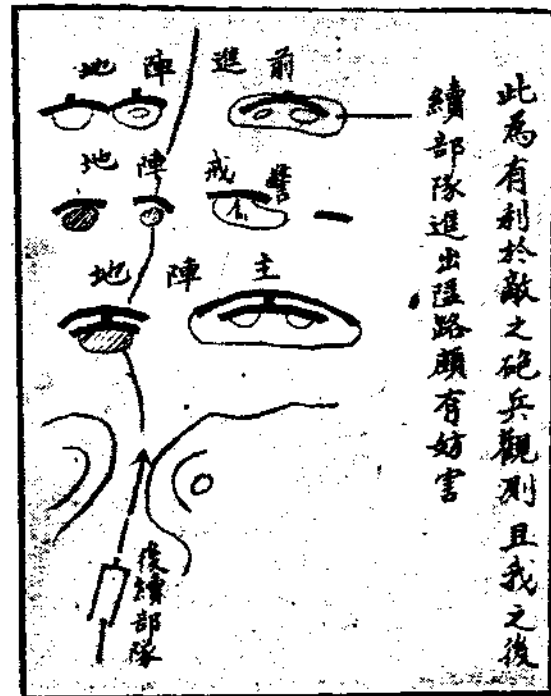 此為有利於敵之砲兵觀測且我之後
續部隊進出隘路頗有妨害
地陣進前
地陣戒警
地陣主
後續部隊